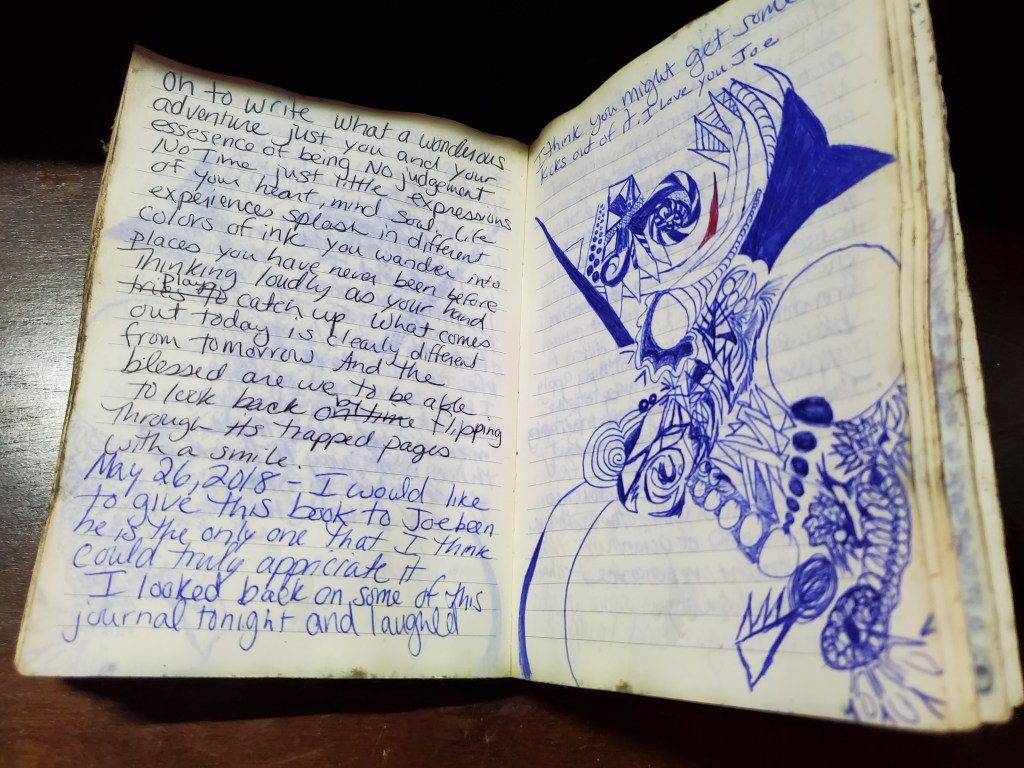 Oh to write what a wonderous
adventure just you and your
essesence of being No judgement
No Time just little expressions
of your heart, mind Soul. Life
experiences splash in different
colors of ink you wander into
places you have never been before
Thinking loudly as your hand
plays
tries to catch up. What comes
out today is clearly different
from tomorrow And the
blessed are we to be able
to look back flipping
Through its trapped pages
with a smile.
May 26, 2018 - I would like
to give this book to Joe been
he is the only one that I think
could truly appriciate it
I looked back on some of this
journal tonight and laughed
I think you might get some
kicks out of it. I love you Joe